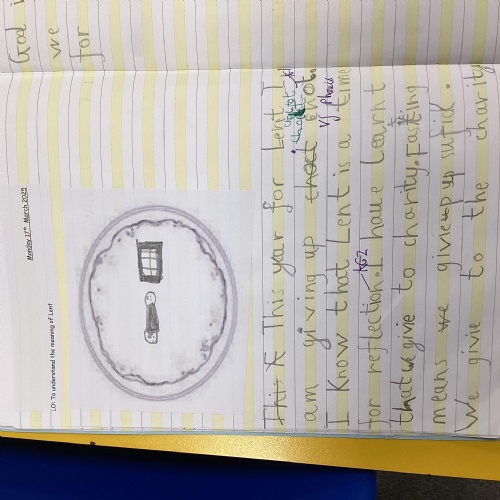 Monday 17th March 2025
LO: To understand the meaning of Lent
This year for Lent I
am giving up choct
I know that Lent is a time
for reflection. I have learnt
that we give to charity. Fasting
means we givie up sufick.
We givie to the charity
NG2
VJ Phonics
God i
we
for